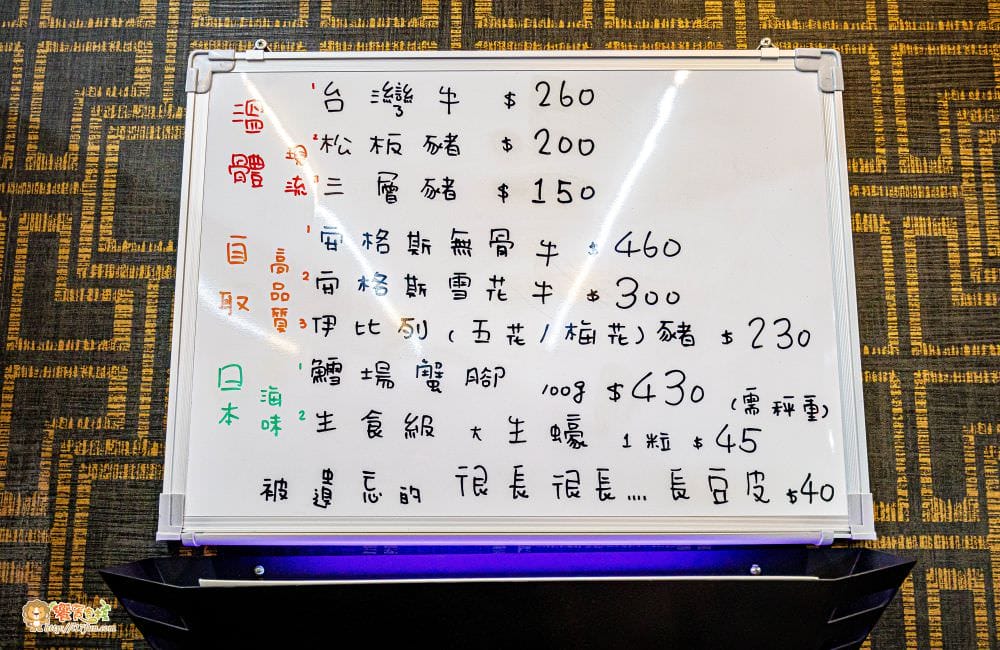 溫體 現流
1 台灣牛 $260
2 松板豬 $200
3 三層豬 $150
自取 高品質
1 安格斯無骨牛 $460
2 安格斯雪花牛 $300
3 伊比列(五花/梅花)豬 $230
日本 海味
1 鱈場蟹腳 100g $430 (需秤重)
2 生食級大生蠔 1粒 $45
被遺忘的 很長很長....長豆皮 $40